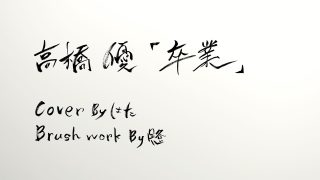 高橋 優「卒業」
Cover By はた
Brush work By